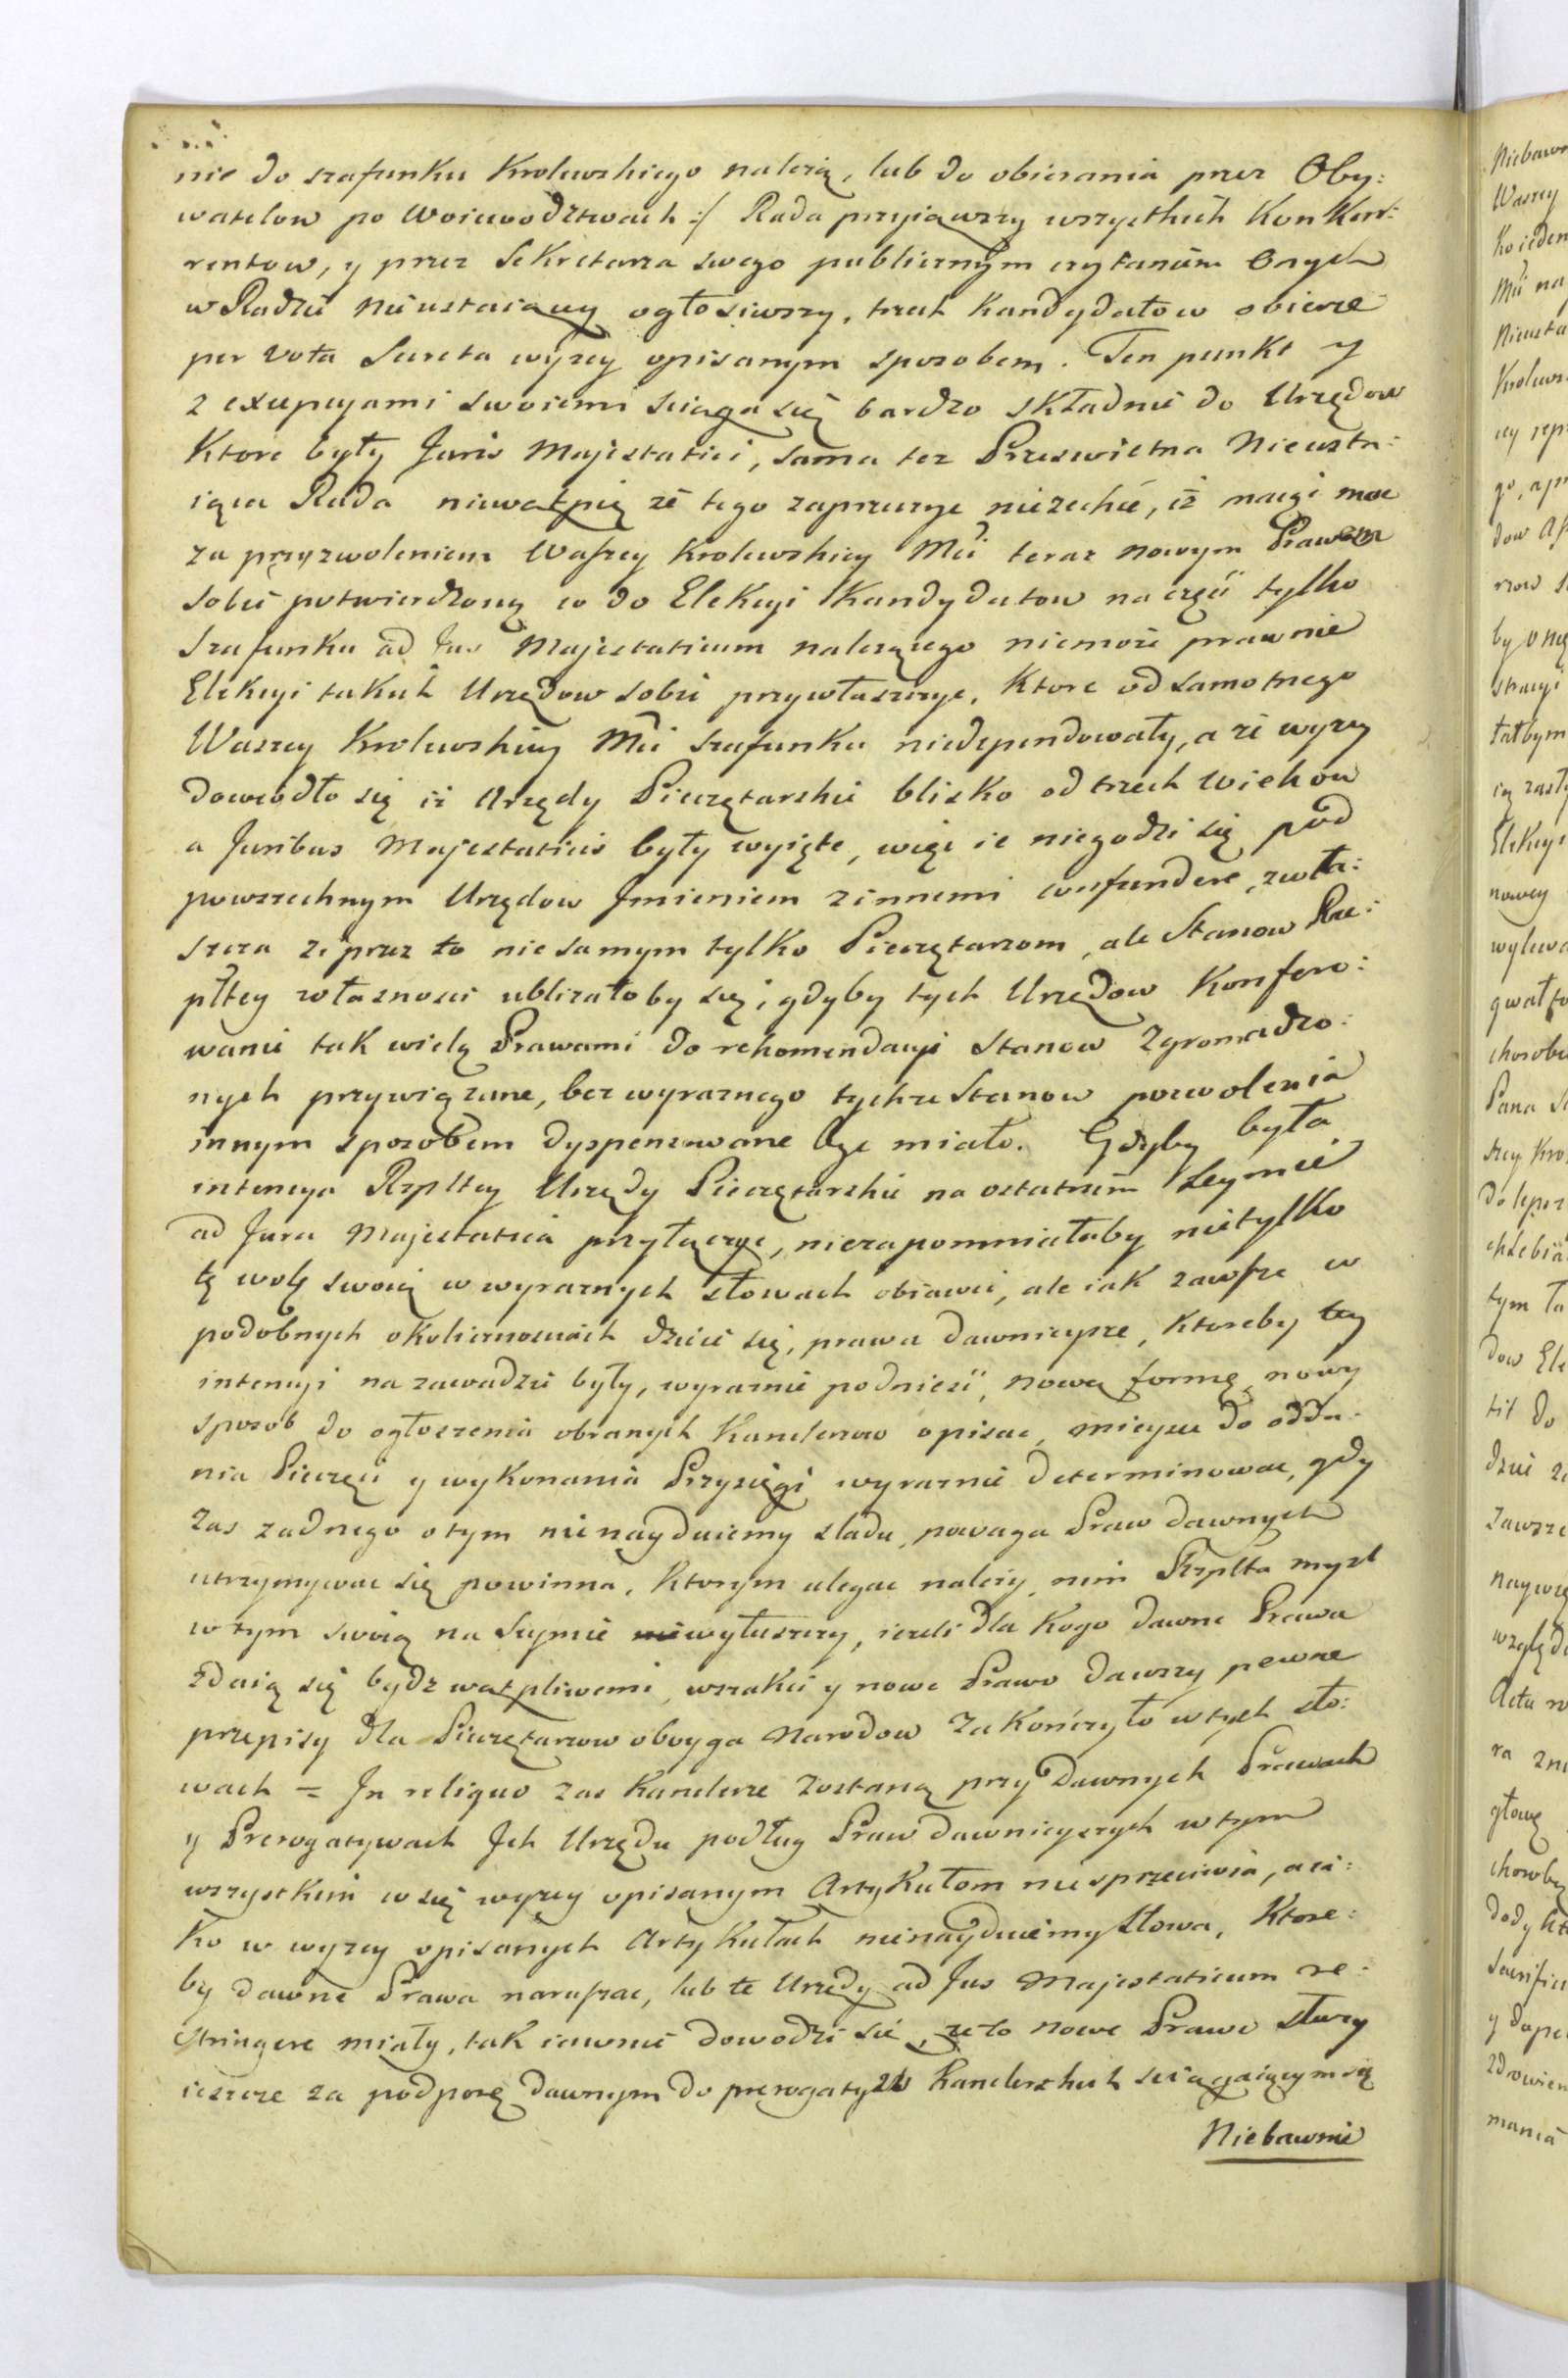 nie do szafunku Krolewskiego należą, lub do obierania przez Oby:
watelow po Woiewodztwach :/ Rada przyiąwszy wszystkich Konkur:
rentow, y przez Sekretarza swego publicznym czytaniem Onych
w Radzie nieustaiącey ogłosiwszy, trzech Kandydatow obierze
per Vota Secreta wyżey opisanym sposobem. Ten punkt y
z excepcyami swoiemi sciąga się bardzo składnie do Urzędow
Ktore były Juris Majestatici, sama też Przeswietna Nieusta:
iąca Rada niewątpię że tego zaprzeczyc niezechce, iż maiąc moc
za przyzwoleniem Waszey Krolewskiey Mci teraz nowym Prawem
sobie potwierdzoną co do Elekcyi Kandydatow na część tylko
Szafunku ad Jus Majestaticum należącego niemoże prawnie
Elekcyi takich Urzędow sobie przywłaszczyc, Ktore od samotnego
Waszey Krolewskiey Mci szafunku niedependowały, a że wyżey
dowiodło się iż Urzędy Pieczętarskie blisko od trzech Wiekow
a Juribus Majestaticis były wyięte, więc ie niegodzi się pod
powszechnym Urzędow Jmieniem z innemi confundere, zwła:
szcza że przez to nie samym tylko Pieczętarzom, ale Stanow Rze:
płtey własnosci ubliżałoby się, gdyby tych Urzędow Konfero:
wanie tak wielą Prawami do rekomendacyi Stanow Zgromadzo:
nych przywiązane, bez wyraznego tychże Stanow pozwolenia
innym sposobem dyspensowane byc miało. Gdyby była
intencya Rzpltey Urzędy Pieczętarskie na ostatnim Seymie
ad Jura Majestatica przyłączyc, niezapomniałaby nietylko
tę wolę swoią w wyraznych słowach obiawic, ale iak zawsze w
podobnych okolicznosciach dzieie się, prawa dawnieysze, ktoreby tey
intencyi na zawadzie były, wyraznie podniesć, nową formę, nowy
sposob do ogłoszenia obranych Kanclerzow opisac, mieysce do odda:
nia Pieczęci y wykonania Przysięgi wyraznie determinowac, gdy
zas zadnego o tym nie naydziemy sladu, powaga Praw dawnych
utrzymywac się powinna, ktorym ulegac należy, nim Rzplta mysl
w tym swoią na Seymie wytłuszczy, ieżeli dla kogo dawne Prawa
zdaią się bydz wątpliwemi, wszakci y nowe Prawo dawszy pewne
przepisy dla Pieczętarzow oboyga Narodow zakończyło w tych sło:
wach = Jn reliquo zas Kanclerze zostaną przy dawnych Prawach
y Prerogatywach Jch Urzędu podług Praw dawnieyszych w tym
wszystkim co się wyżey opisanym Artykułom nie sprzeciwia, a ia:
ko w wyżey opisanych Artykułach nienaydziemy słowa, ktore:
by dawne Prawa naruszac, lub te Urzędy ad Jus Majestaticum re:
stringere miały, tak iawnie dowodzi się, że to nowe Prawo służy
ieszcze za podporę dawnym do prerogatyw Kanclerskich sciągaiącym się
Niebawnie